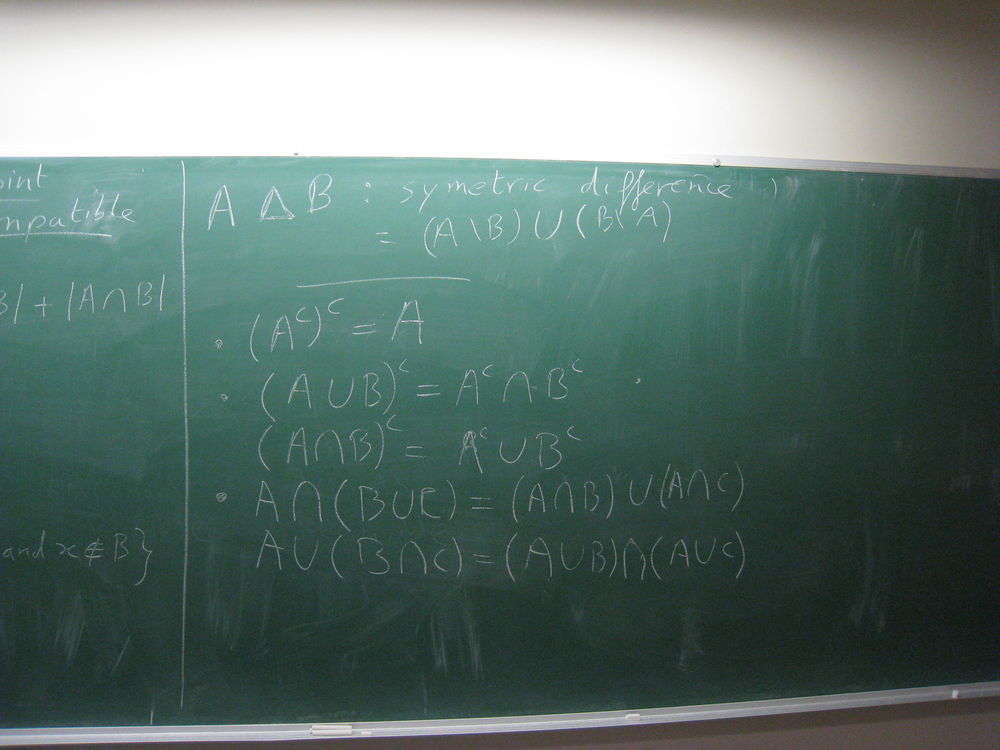 oint
mpatible
B| + |A∩B|
and x ∉ B}
A Δ B : symetric difference
= (A \ B) ∪ (B \ A)
• (Aᶜ)ᶜ = A
• (A∪B)ᶜ = Aᶜ ∩ Bᶜ
(A∩B)ᶜ = Aᶜ ∪ Bᶜ
• A∩(B∪C) = (A∩B) ∪ (A∩C)
A∪(B∩C) = (A∪B)∩(A∪C)